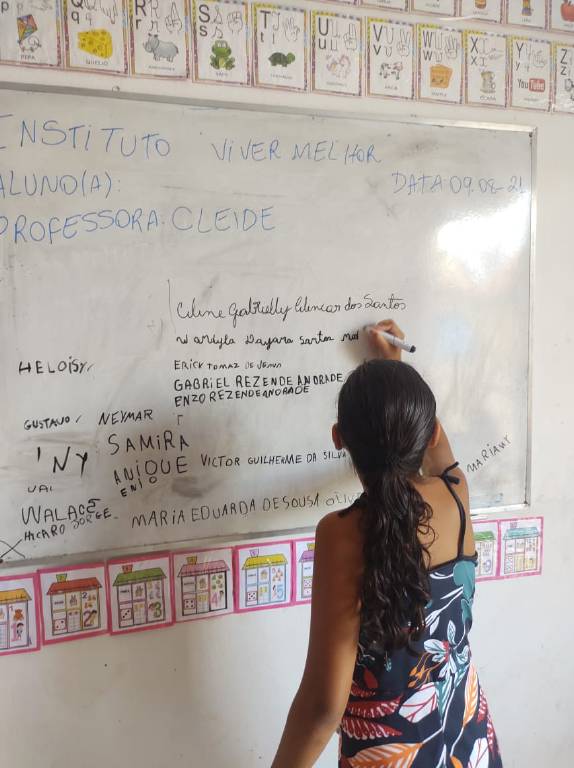 P p
PIPA
Q q
QUEIJO
R r
S s
SAPO
T t
U u
V v
VACA
W w
X x
Y y
YouTube
Z z
INSTITUTO VIVER MELHOR
ALUNO(A):
DATA 09.08-21
PROFESSORA: CLEIDE
Gabrielly dos Santos
Dayana Santos
HELOISY
ERICK TOMAZ DE JESUS
GABRIEL REZENDE ANDRADE
ENZO REZENDE ANDRADE
GUSTAVO NEYMAR
SAMIRA
NY
VICTOR GUILHERME DA SILVA
ENIO
WALACE
HICARO JORGE
MARIA EDUARDA DE SOUSA